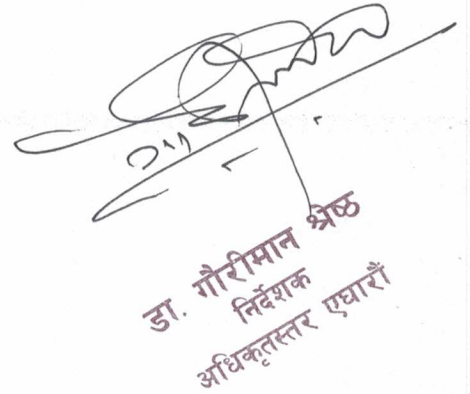 डा. गौरीमान श्रेष्ठ
निर्देशक
अधिकृतस्तर एघारौं